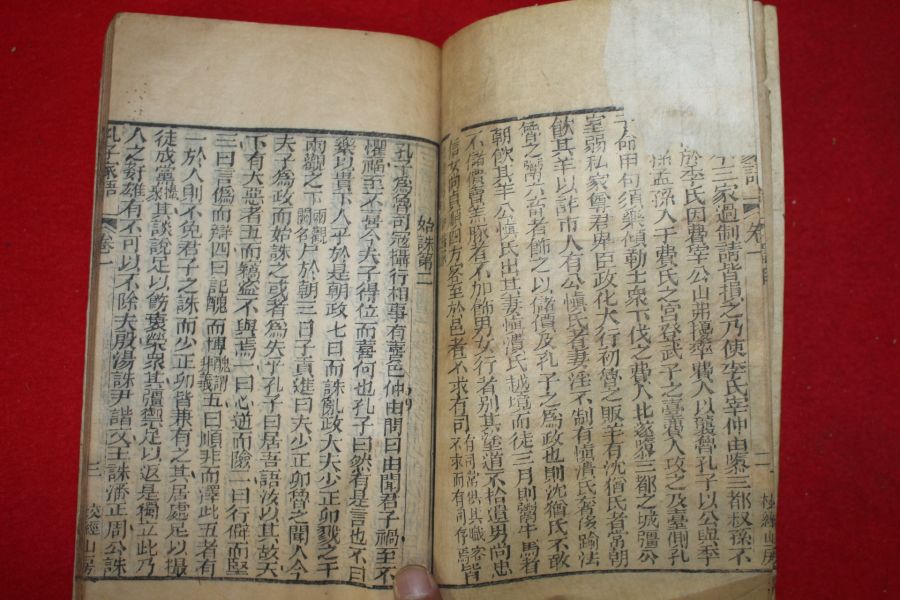 三家過制請皆損之乃使季氏宰仲由隳三都叔孫不
於季氏因費宰公山弗擾率費人以襲魯孔子以公與季
孫孟孫入于費氏之宮登武子之臺費人攻之及臺側孔
子命申句須樂頎勒士眾下伐之費人北遂隳三都之城彊公
室弱私家尊君卑臣政化大行初魯之販羊有沈猶氏者常朝
飲其羊以詐市人有公慎氏者妻淫不制有慎潰氏者奢踰法
魯之鬻六畜者飾之以儲價及孔子之為政也則沈猶氏不敢
朝飲其羊公慎氏出其妻慎潰氏越境而徙三月則鬻牛馬者
不儲價賣羊豚者不加飾男女行者別其塗道不拾遺男尚忠
信女尚貞順四方客至於邑者不求有司有司常供其職客不求而有司存焉皆
家語 卷一 二 校經山房
始誅第二
孔子為魯司寇攝行相事有喜色仲由問曰由聞君子禍至不
懼福至不喜今夫子得位而喜何也孔子曰然有是言也不曰
樂以貴下人乎於是朝政七日而誅亂政大夫少正卯戮之于
兩觀之下兩觀闕名尸於朝三日子貢進曰夫少正卯魯之聞人今
夫子為政而始誅之或者為失乎孔子曰居吾語汝以其故天
下有大惡者五而竊盜不與焉一曰心逆而險二曰行僻而堅
三曰言偽而辯四曰記醜而博醜謂非義五曰順非而澤此五者有
一於人則不免君子之誅而少正卯皆兼有之其居處足以撮
徒成黨撮聚其談說足以飾褒榮眾其彊禦足以返是獨立此乃
人之姦雄有不可以不除夫殷湯誅尹諧文王誅潘正周公誅
孔子家語 卷一 三 校經山房